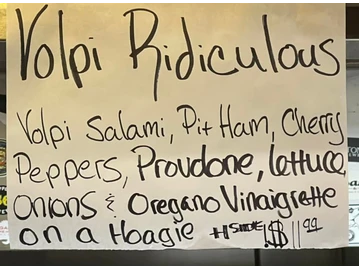 Volpi Ridiculous
Volpi Salami, Pit Ham, Cherry
Peppers, Provdone, lettuce,
Onions & Oregano Vinaigrette
on a Hoagie +1 SIDE! $11.99